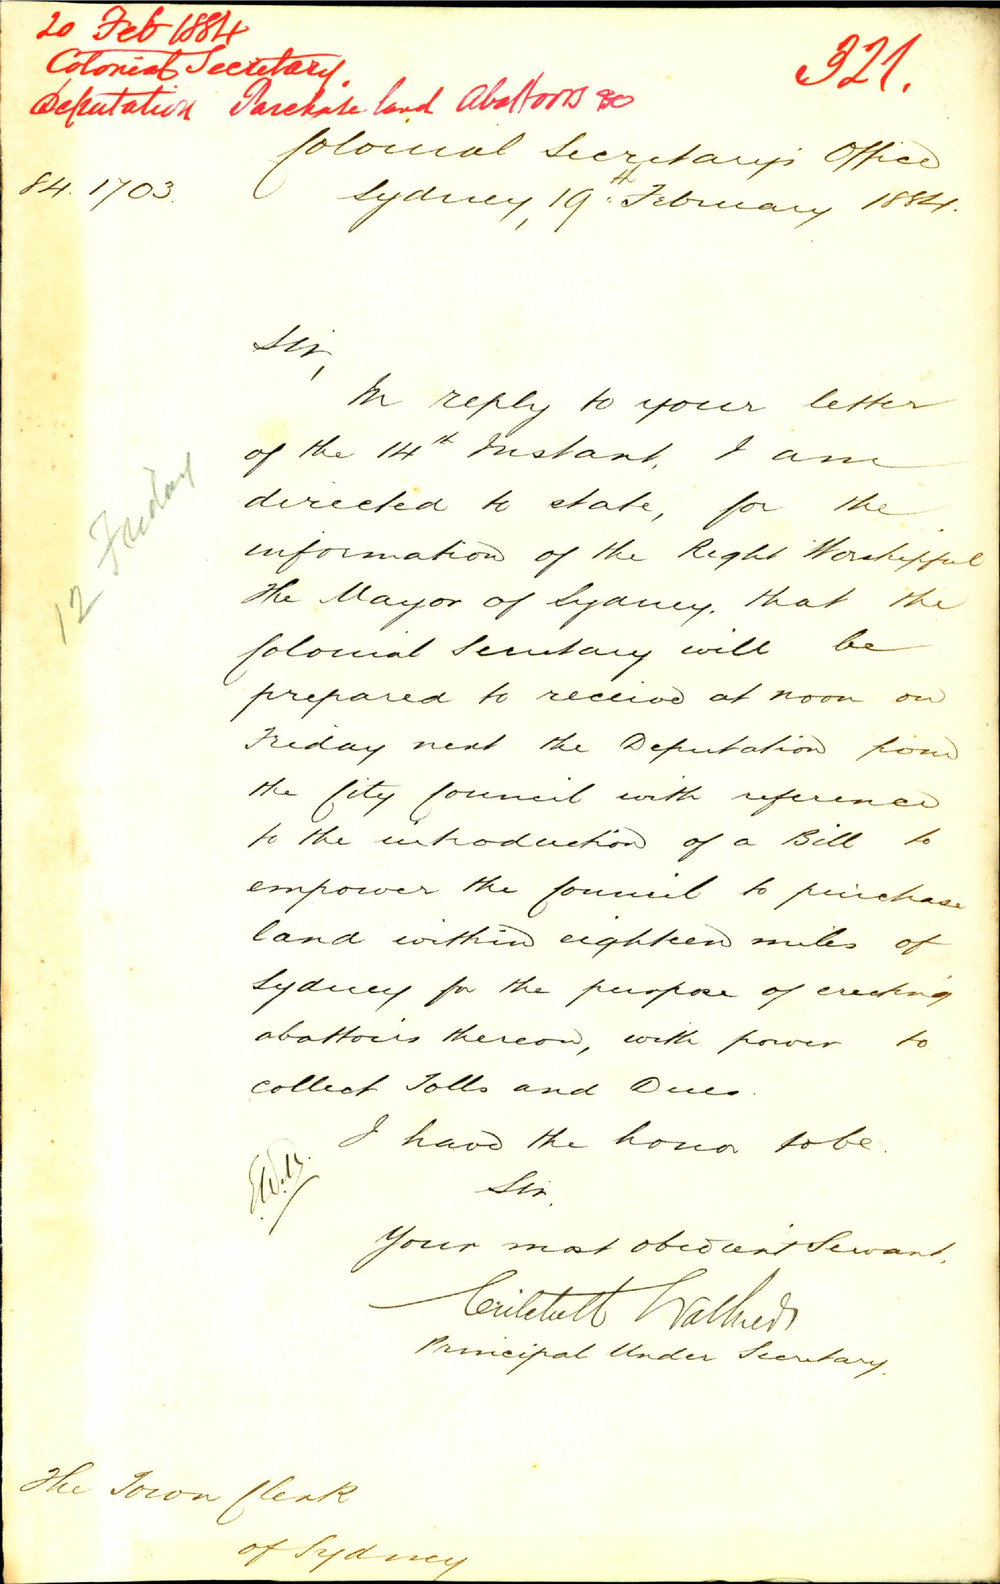 20 Feb 1884
Colonial Secretary.
Deputation Purchase land Abattoirs &c
321.
Colonial Secretary's Office
84. 1703.
Sydney, 19th February 1884.
Sir,
In reply to your letter
of the 14th Instant, I am
directed to state, for the
information of the Right Worshipful
the Mayor of Sydney, that the
Colonial Secretary will be
prepared to receive at noon on
Friday next the Deputation from
the City Council with reference
to the introduction of a Bill to
empower the Council to purchase
land within eighteen miles of
Sydney for the purpose of erecting
abattoirs thereon, with power to
collect Tolls and Dues.
12 Friday
I have the honor to be.
Sir,
Your most obedient Servant,
Critchett Walker
Principal Under Secretary.
The Town Clerk
of Sydney